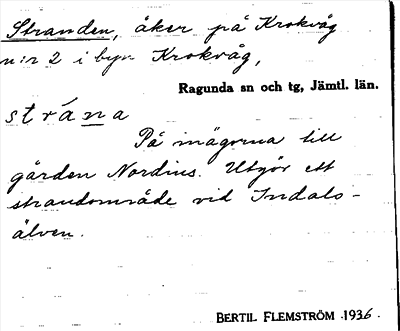 Stranden, åker på Krokvåg
n:r 2 i byn Krokvåg,
Ragunda sn och tg, Jämtl. län.
strána
På inägorna till
gården Nordins. Utgör ett
strandområde vid Indals-
älven.
BERTIL FLEMSTRÖM 1936.